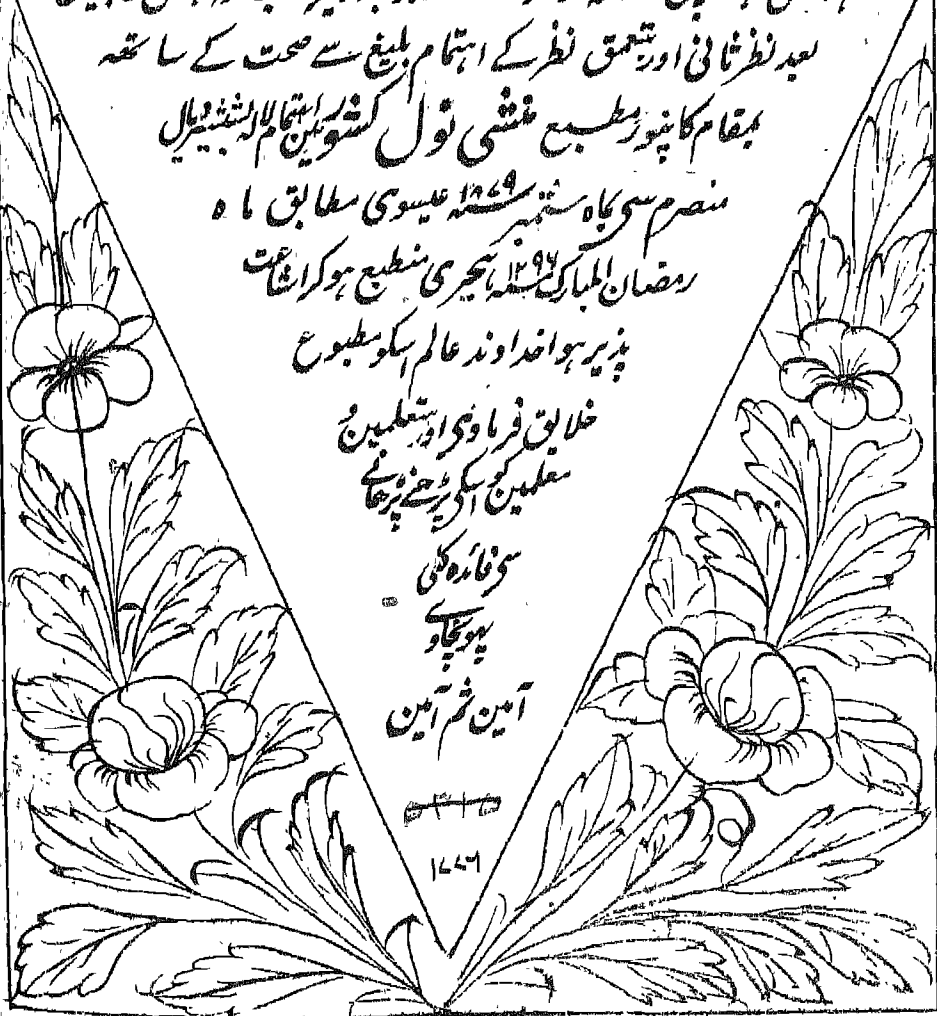 بعد نظر ثانی اور بتعمق نظر کے اہتمام بلیغ سے صحت کے ساتھہ
بمقام کانپور مطبع منشی نول کشور میں باہتمام لالہ بشیشر دیال
منصرم سی بماہ ستمبر سنہ ۱۸۷۹ عیسوی مطابق ماہ
رمضان المبارک سنہ ۱۲۹۶ ہجری منطبع ہو کر اشاعت
پذیر ہوا خداوند عالم اسکو مطبوع
خلایق فرماوی اور متعلمین و
معلمین کو اسکی پڑھنے پڑھانے
سی فائدہ کلی
پہونچاوے
آمین ثم آمین
۱۷۷۶